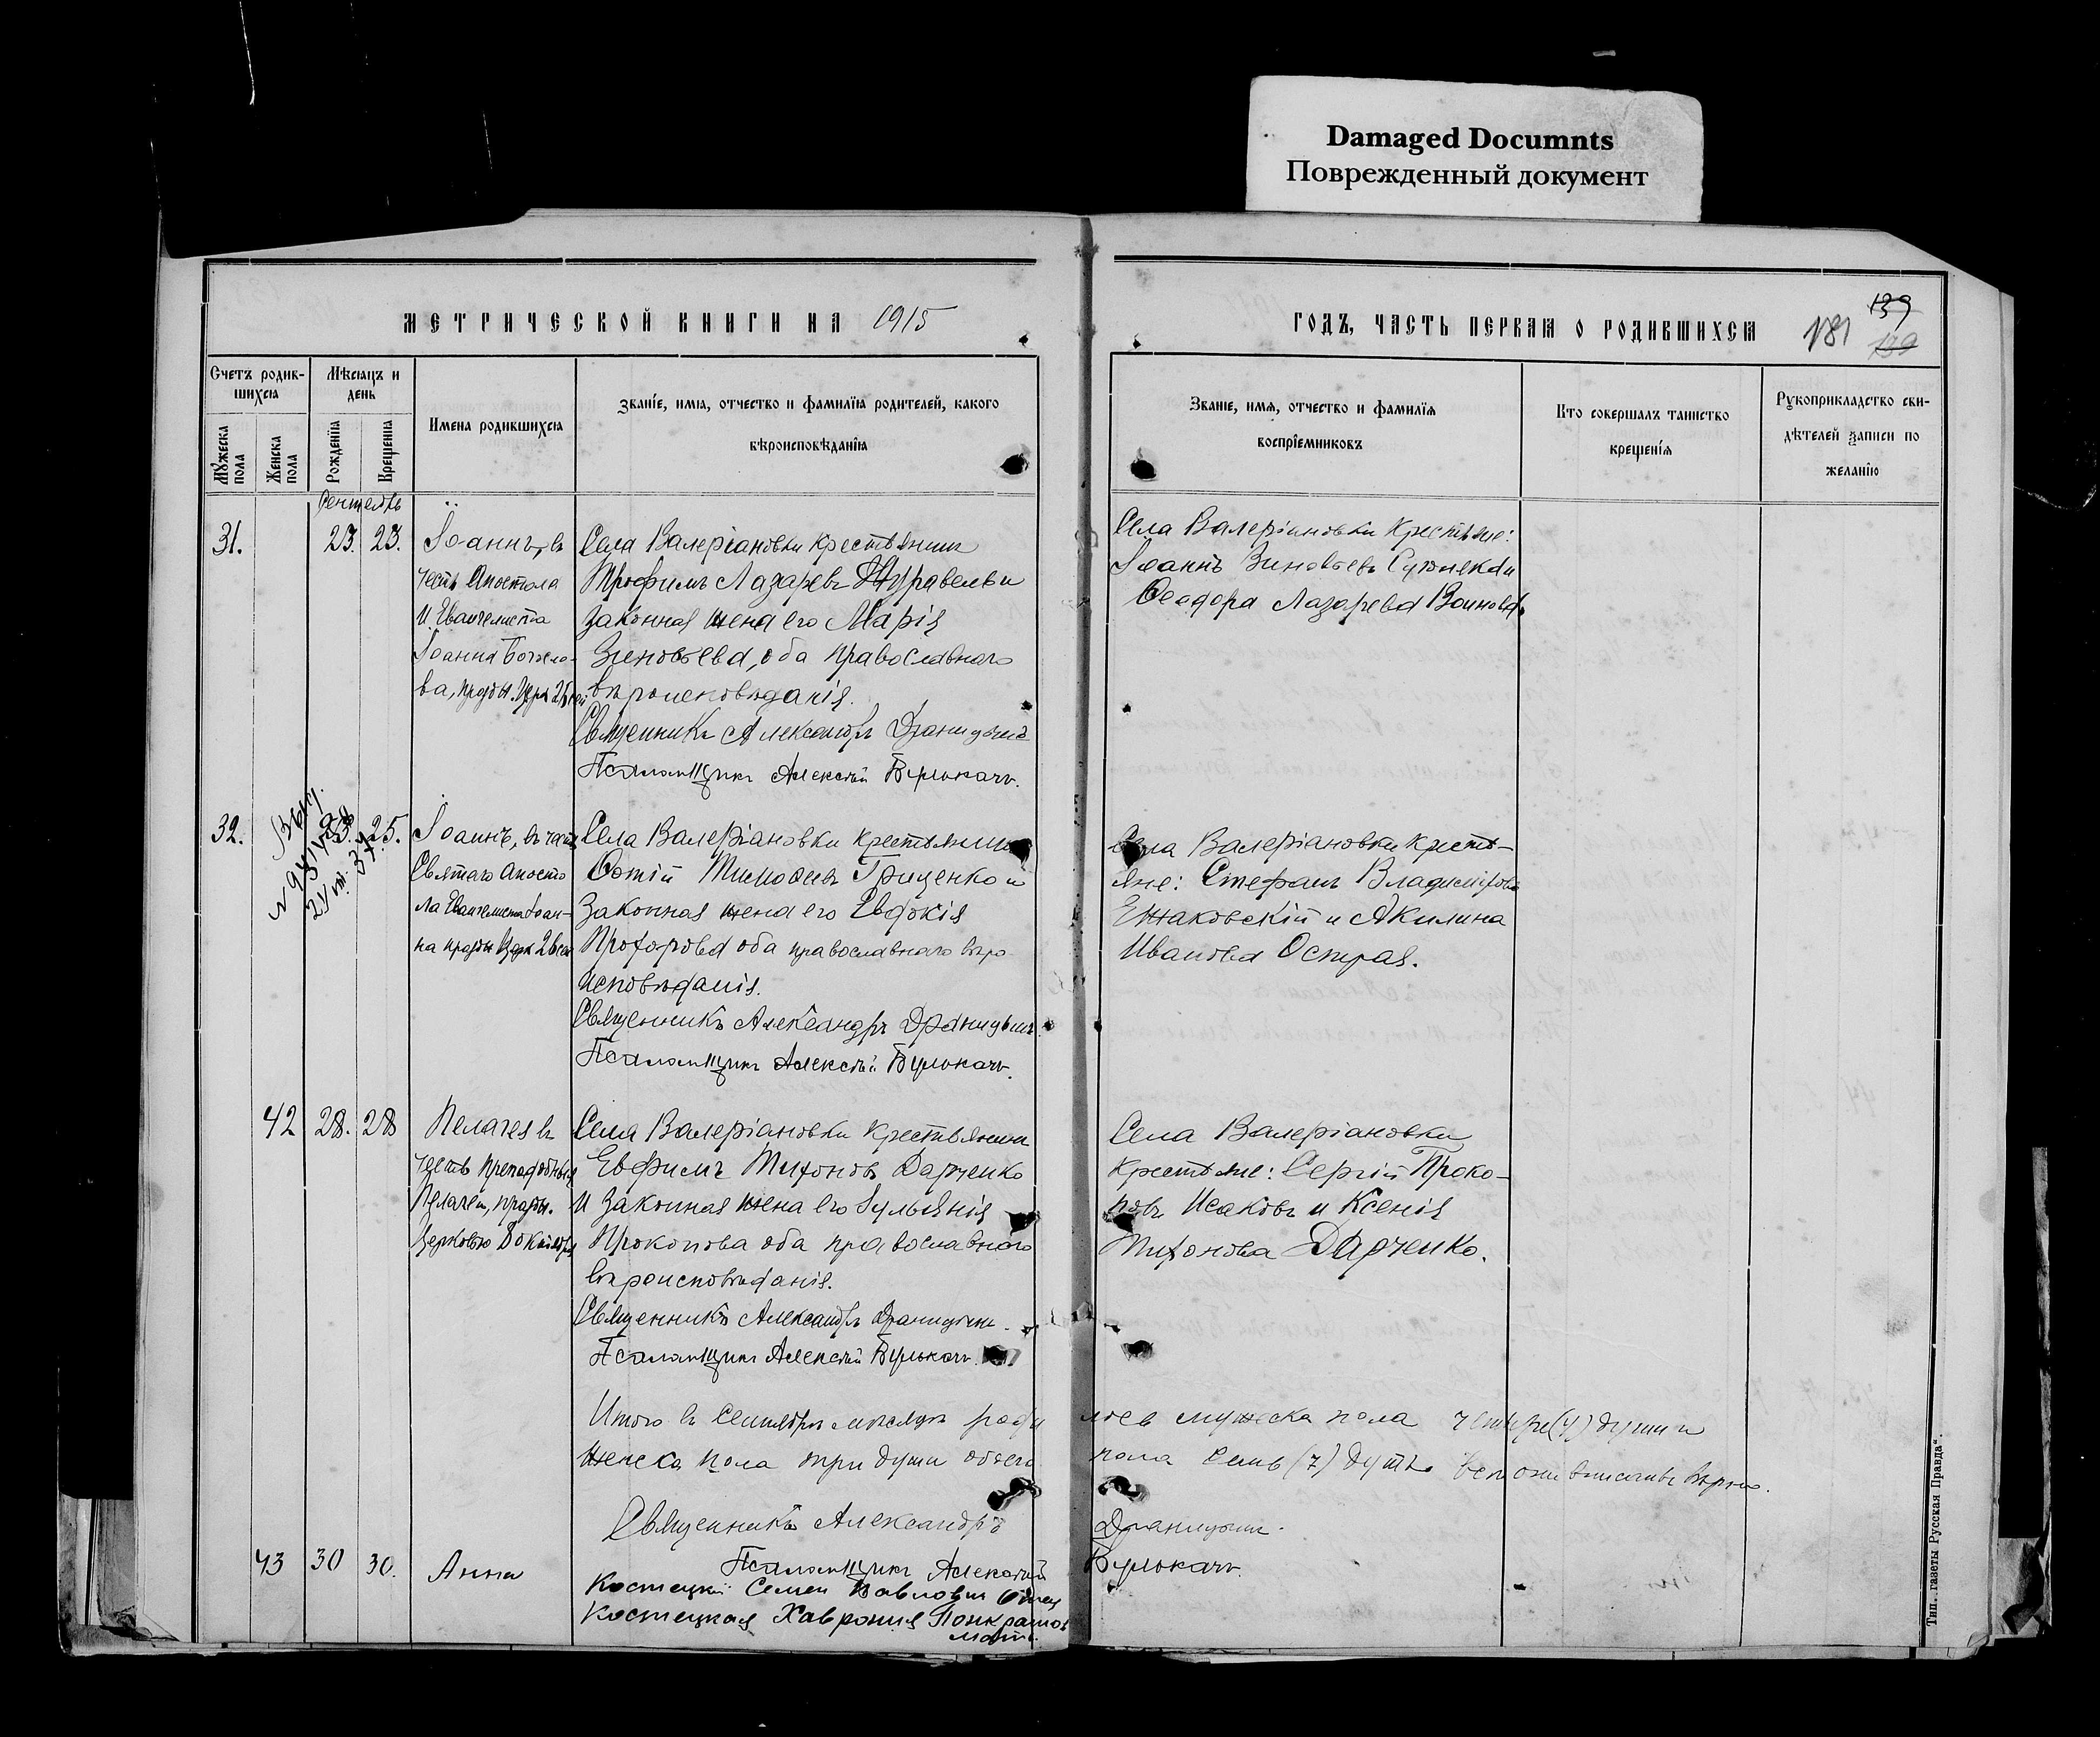 Damaged Documnts
Поврежденный документ
МЕТРИЧЕСКОЙ КНИГИ НА 1915
ГОДЪ, ЧАСТЬ ПЕРВАЯ О РОДИВШИХСЯ
181 139
139
Счетъ родив-
шихся
Мужеска пола
Женска пола
Мѣсяцъ и
день
Рожденїя
Крещенїя
Имена родившихся
Званїе, имя, отчество и фамилїя родителей, какого
вѣроисповѣданїя
Званїе, имя, отчество и фамилїя
воспрїемниковъ
Кто совершалъ таинство
крещенїя
Рукоприкладство сви-
дѣтелей записи по
желанїю
Сентябрь
31. 23. 23.
Іоаннъ, въ
честь Апостола
и Евангелиста
Іоанна Богосло-
ва, празн. Церк 26 сен
Села Валеріановки крестьянинъ
Трофимъ Лазаревъ Журавель и
законная жена его Марія
Зиновьева, оба православнаго
вѣроисповѣданія.
Священникъ Александръ Драницынъ
Псаломщикъ Алексѣй Бурлокачъ.
Села Валеріановки крестьяне:
Іоаннъ Зиновьевъ и
Ѳеодора Лазарева
32. 25.
Іоаннъ, въ честь
Святаго Апосто
ла Евангелиста Іоан-
на празн Церк 26 сен
Села Валеріановки крестьянинъ
Фотій Тимоѳеевъ Гриценко и
законная жена его Евдокія
Прохорова оба православнаго вѣро
исповѣданія.
Священникъ Александръ Драницынъ.
Псаломщикъ Алексѣй Бурлокачъ.
Села Валеріановки кресть-
яне: Стефанъ Владиміровъ
Ежаковскій и Акилина
Иванова Острая.
42 28. 28
Пелагея въ
честь преподобныя
Пелагеи, празн.
Церковью 8 октября
Села Валеріановки крестьянинъ
Евфимъ Тихоновъ Дарченко
и законная жена его Іуліанія
Прокопова оба православнаго
вѣроисповѣданія.
Священникъ Александръ Драницынъ.
Псаломщикъ Алексѣй Бурлокачъ.
Села Валеріановки
крестьяне: Сергій Проко-
повъ Исаковъ и Ксенія
Тихонова Дарченко.
Итого въ Сентябрѣ мѣсяцѣ роди лось мужеска пола четыре (4) души и
женска пола три души обоего пола семь (7) душъ
Священникъ Александръ Драницынъ.
Псаломщикъ Алексѣй Бурлокачъ.
43 30 30.
Анна
Костецкий Семен Павлович отец
Костецкая Хаврония Понкратов
мать.
Тип. газеты „Русская Правда“.